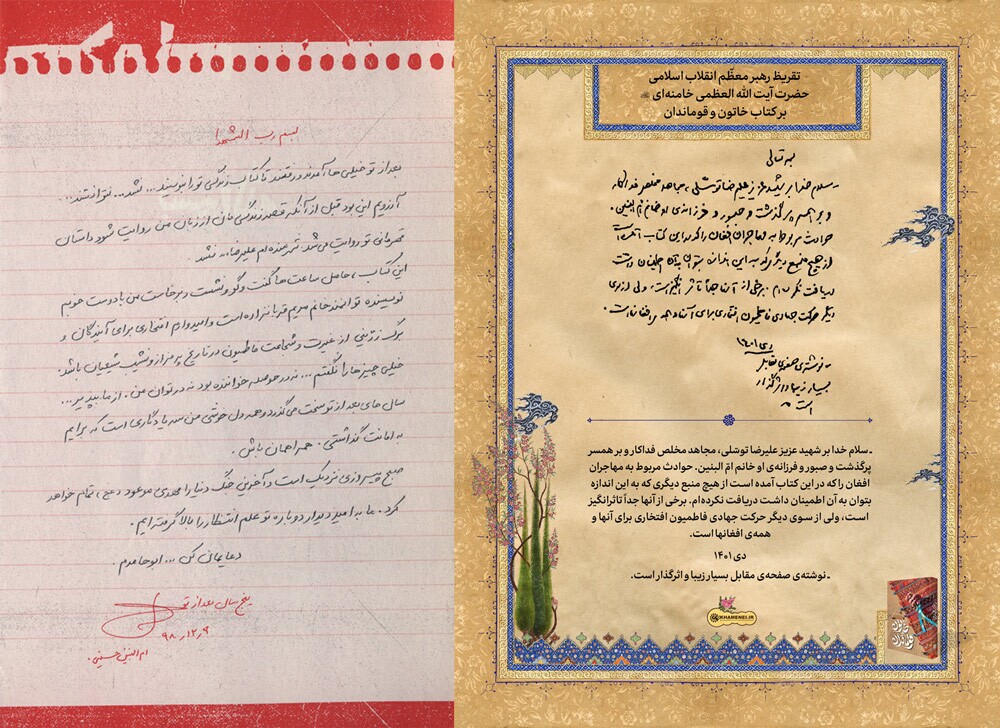 بسم رب الشهدا
بعد از تو خیلی‌ها آمدند و رفتند تا کتاب زندگی تو را بنویسند... نشد... نتوانستند...
آرزویم این بود قبل از آنکه قصه زندگی‌مان از زبان من روایت شود داستان
قهرمانی تو روایت می‌شد. شرمنده‌ام علیرضا... نشد
این کتاب، حاصل ساعت‌ها گفت و گو و نشست و برخاست من با دوست خوبم
نویسنده توانمند خانم مریم قربانزاده است و امیدوارم افتخاری برای آیندگان و
برگ زرینی از غیرت و شجاعت فاطمیون در تاریخ پر فراز و نشیب شیعیان باشد.
خیلی چیزها را نگفتم... نه در حوصله خواننده بود نه در توان من. از ما بپذیر...
سال‌های بعد از تو سخت می‌گذرد و همه دل خوشی من سه یادگاری است که برایم
به امانت گذاشتی. همراهمان باش.
صبح پیروزی نزدیک است و آخرین جنگ دنیا را مهدی موعود (عج)، تمام خواهد
کرد. ما به امید دیدار دوباره تو علم انتظار را بالا گرفته‌ایم.
دعایمان کن... ابوحامدم.
پنج سال بعد از تو
۹۸,۱۲,۹
ام البنین حسینی.
تقریظ رهبر معظّم انقلاب اسلامی
حضرت آیت الله العظمی خامنه‌ای
بر کتاب خاتون و قوماندان
بسمه تعالی
ـ سلام خدا بر شهید عزیز علیرضا توسّلی، مجاهد مخلص فداکار
و بر همسر پرگذشت و صبور و فرزانه‌ی او خانم امّ البنین.
حوادث مربوط به مهاجران افغان را که در این کتاب آمده است
از هیچ منبع دیگری که به این اندازه بتوان به آن اطمینان داشت
دریافت نکرده‌ام. برخی از آنها جداً تاثرانگیز است، ولی از سوی
دیگر حرکت جهادی فاطمیون افتخاری برای آنها و همه‌ی افغانها است.
دی ۱۴۰۱
ـ نوشته‌ی صفحه‌ی مقابل
بسیار زیبا و اثرگذار
است
ـ سلام خدا بر شهید عزیز علیرضا توسّلی، مجاهد مخلص فداکار و بر همسر
پرگذشت و صبور و فرزانه‌ی او خانم امّ البنین. حوادث مربوط به مهاجران
افغان را که در این کتاب آمده است از هیچ منبع دیگری که به این اندازه
بتوان به آن اطمینان داشت دریافت نکرده‌ام. برخی از آنها جداً تاثرانگیز
است، ولی از سوی دیگر حرکت جهادی فاطمیون افتخاری برای آنها و
همه‌ی افغانها است.
دی ۱۴۰۱
ـ نوشته‌ی صفحه‌ی مقابل بسیار زیبا و اثرگذار است.
KHAMENEI.IR
خاتون
قوماندان